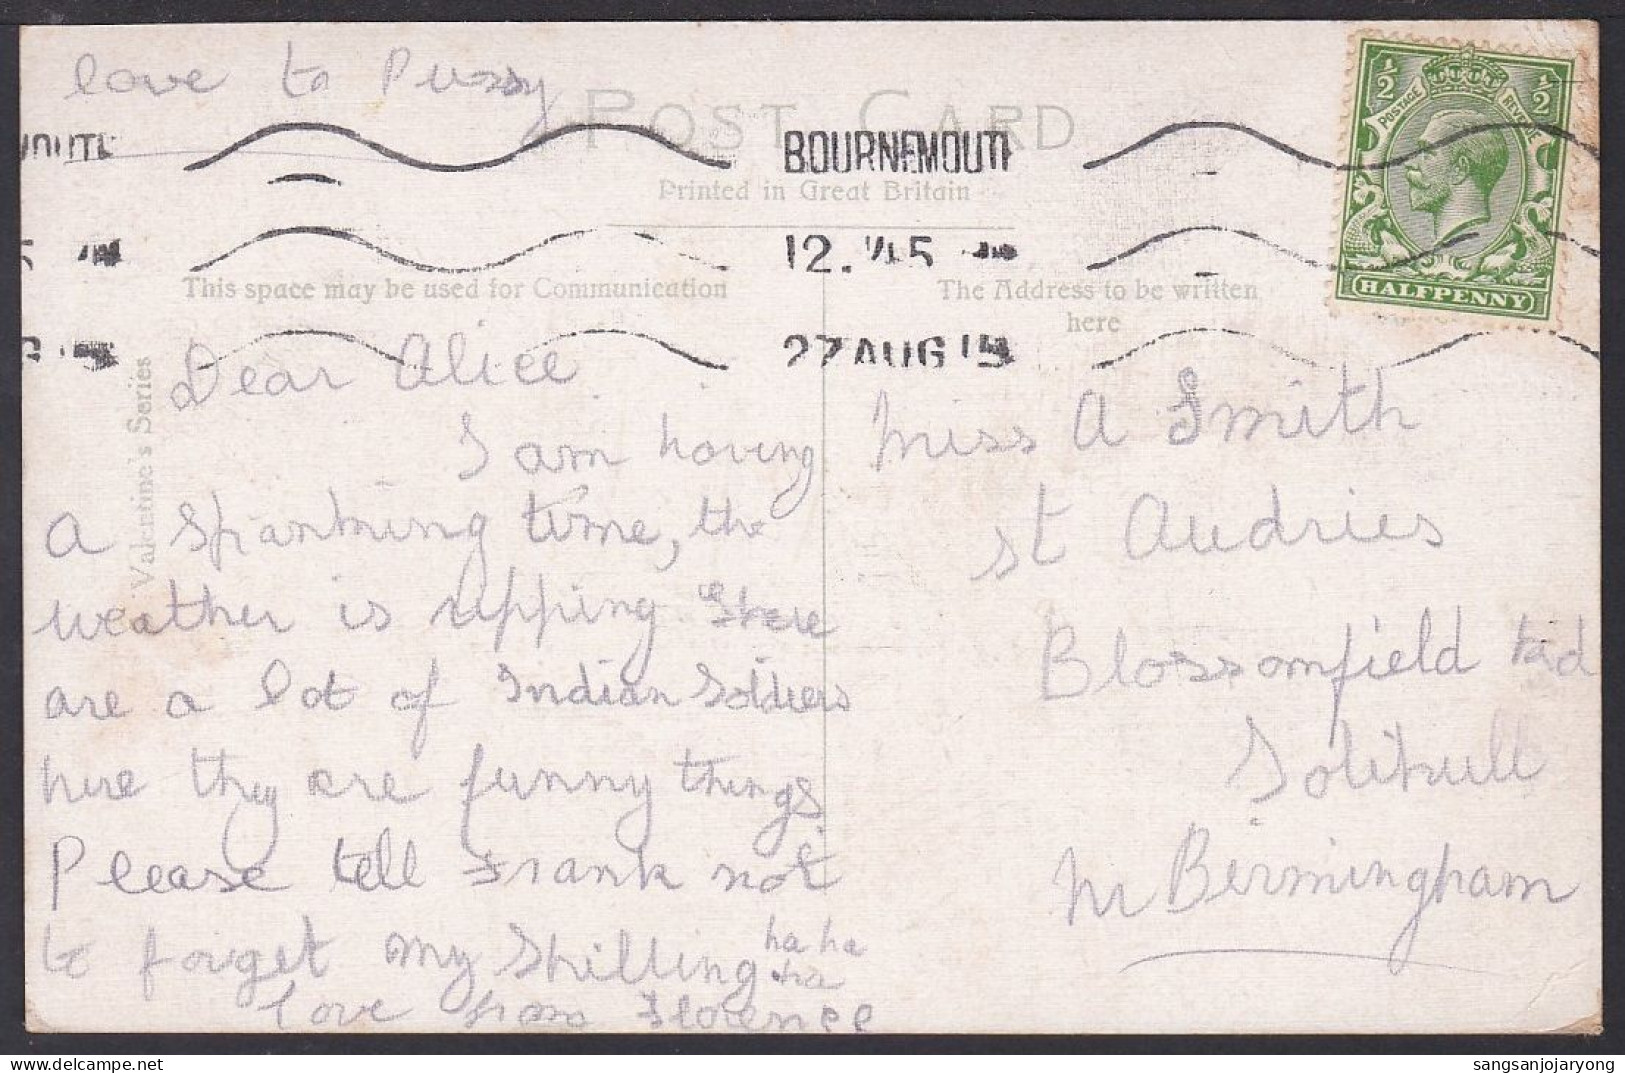 love to Pussy
POST CARD
BOURNEMOUTH
Printed in Great Britain
12.45
27 AUG 15
½ POSTAGE REVENUE ½
HALFPENNY
This space may be used for Communication
The Address to be written
here
Valentine's Series
Dear Alice
I am having
a spanking time, the
weather is ripping there
are a lot of Indian Soldiers
here they are funny things
Please tell Frank not
to forget my Shilling ha ha
ha
love from Florence
Miss A Smith
St Audries
Blossomfield Rd
Solihull
Nr Birmingham
sangsanjojaryong.com